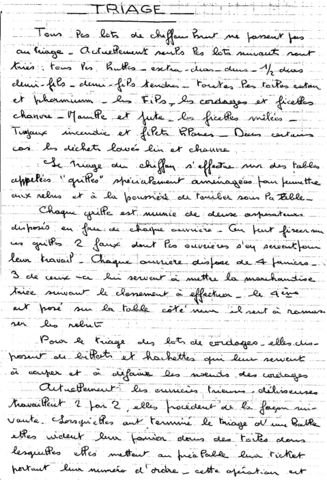 TRIAGE
Tous les lots de chiffon brut ne passent pas
au triage - Actuellement seuls les lots suivants sont
triés : tous les bulles - extra-durs - durs - 1/2 durs
demi-fils - demi-fils tendres - toutes les toiles coton
et phormium - les Fils, les cordages et ficelles
chanvre - Manille et jute - les ficelles mêlées -
Tuyaux incendie et filets - Dans certains
cas les déchets lavés lin et chanvre
Le triage du chiffon s'effectue sur des tables
appelées "grilles" spécialement aménagées pour permettre
aux rebus et à la poussière de tomber sous la table -
Chaque grille est munie de deux aspirateurs
disposés en face de chaque ouvrière - On peut fixer sur
ces grilles 2 faux dont les ouvrières s'en servent pour
leur travail - Chaque ouvrière dispose de 4 paniers -
3 de ceux-ci lui servent à mettre la marchandise
triée suivant le classement à effectuer - le 4ème
est posé sur la table côté mur il sert à ramas-
ser les rebuts
Pour le triage des lots de cordages - elles dis-
posent de billots et hachettes qui leur servent
à couper et à défaire les nœuds des cordages
Actuellement les ouvrières trieuses - délisseuses
travaillent 2 par 2, elles procèdent de la façon sui-
vante. Lorsqu'elles ont terminé le triage d'une balle
elles vident leur panier dans des toiles dans
lesquelles elles mettent au préalable leur ticket
portant leur numéro d'ordre - cette opération est